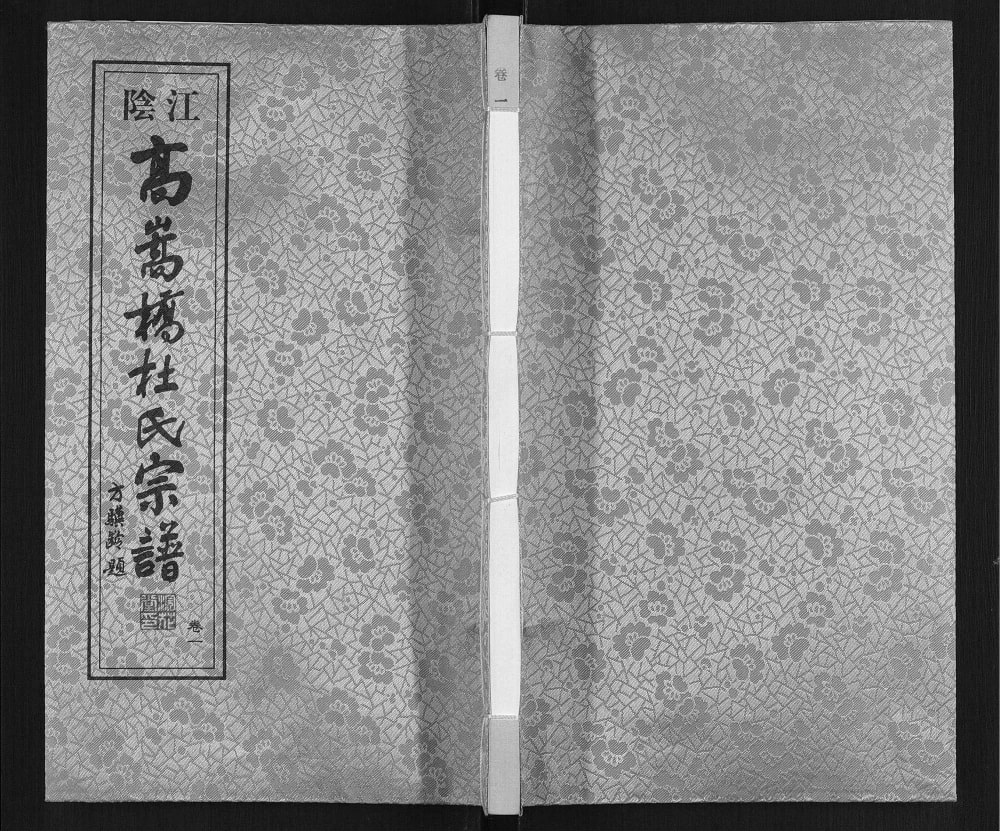 江陰
高嵩橋杜氏宗譜
方驥齡題
卷一
卷一